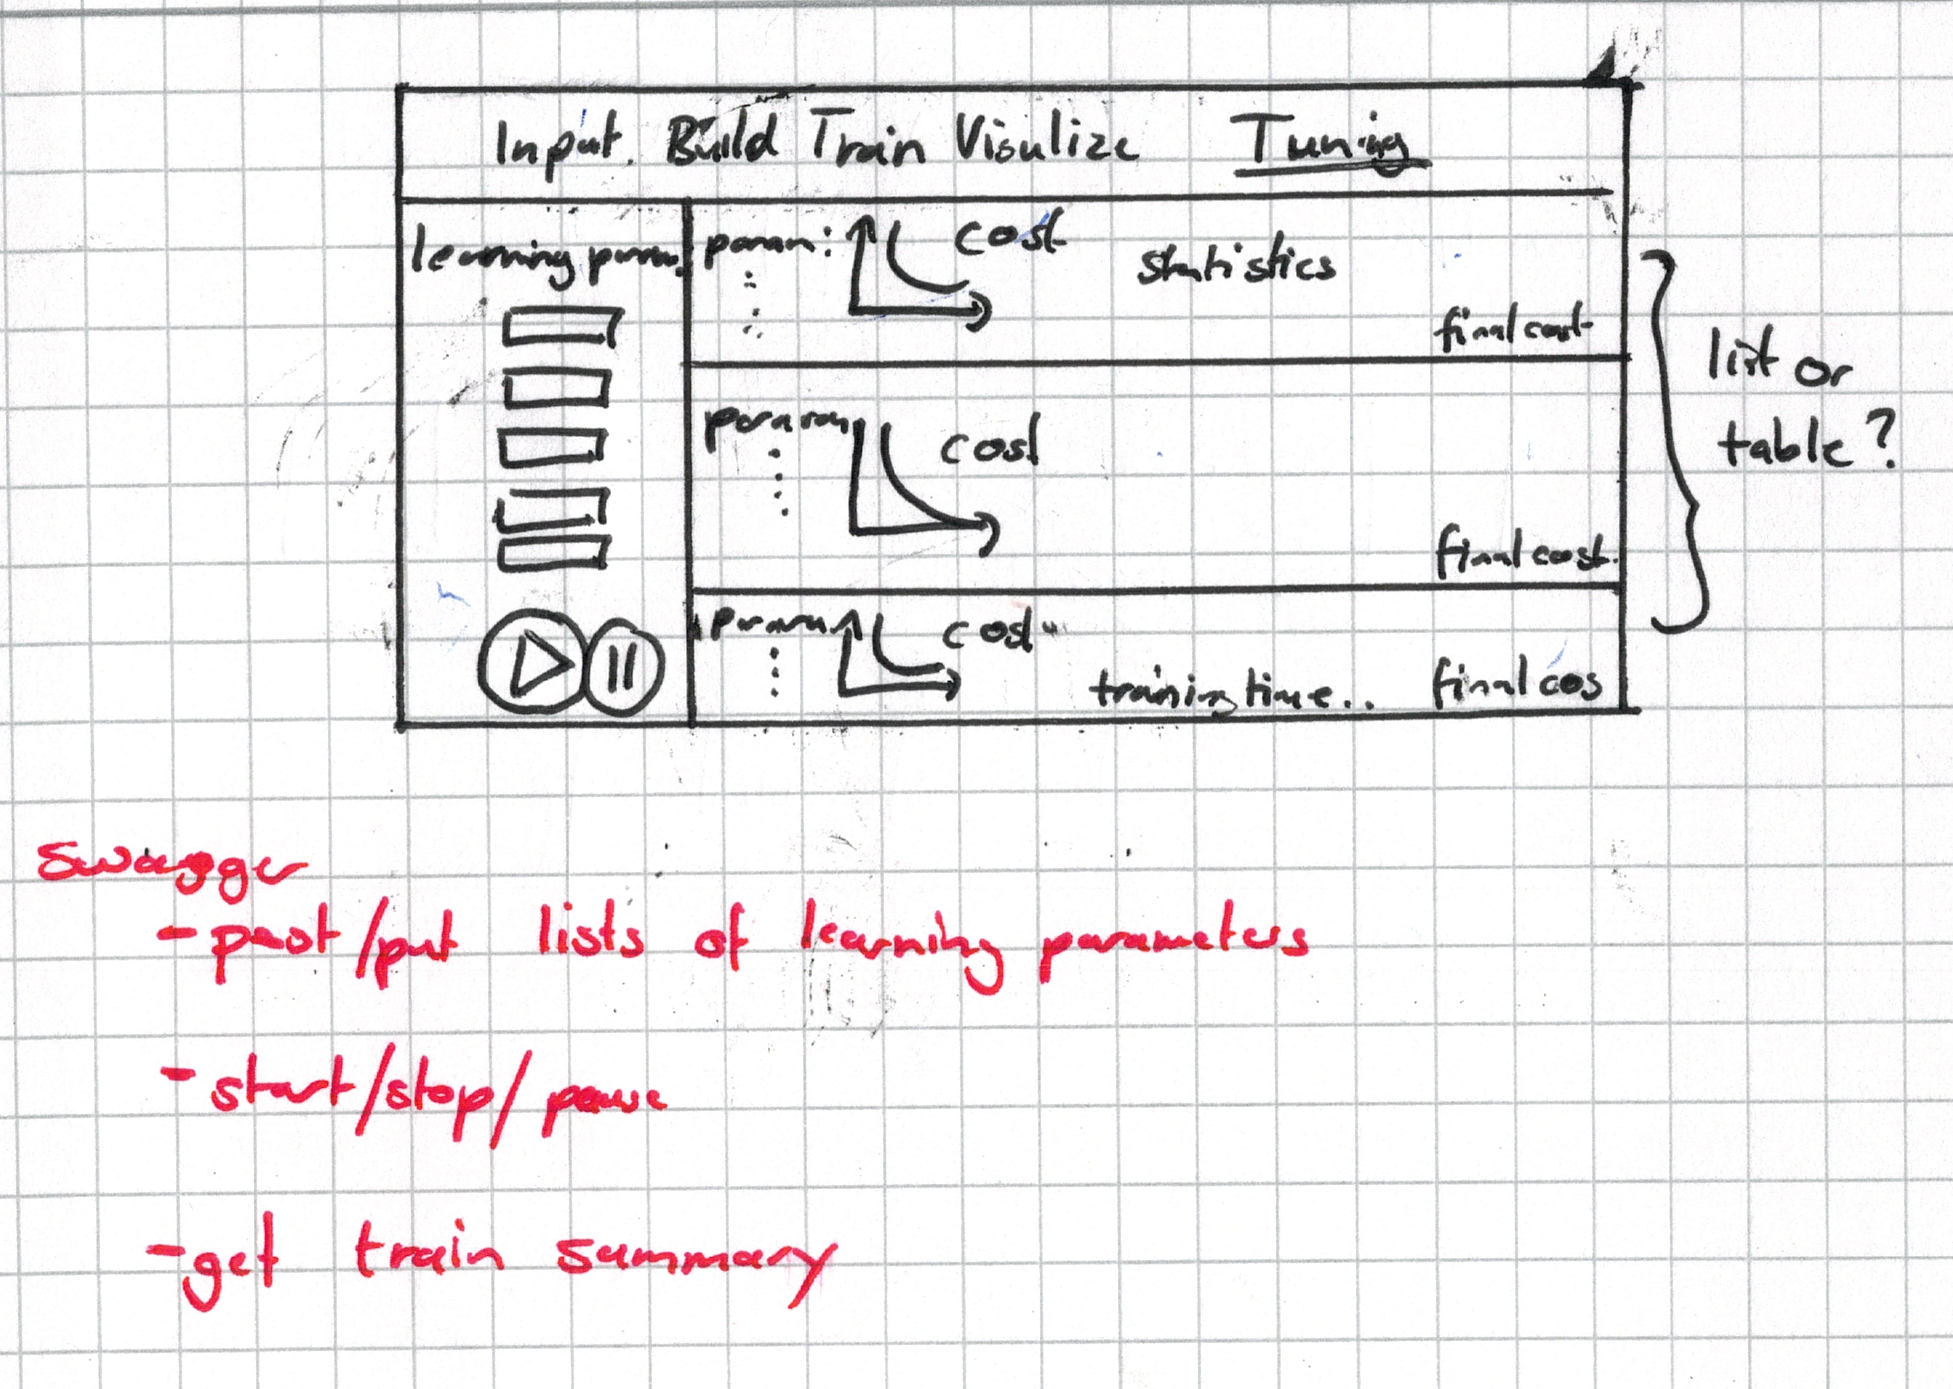 Input. Build Train Visulize Tuning
learning param.
param: cost statistics
final cost
param cost
final cost.
param cost
training time.. final cos
list or
table?
Swagger
- post/put lists of learning parameters
- start/stop/pause
- get train summary